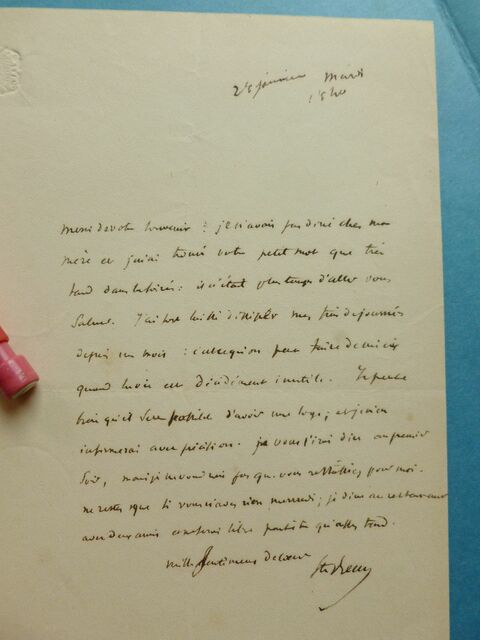 28 janvier Mardi
1840
Merci de votre souvenir : je n'avais pas diné chez ma
mère et j'ai trouvé votre petit mot que très
tard dans la soirée : il n'était plus temps d'aller vous
saluer. J'ai très mes journées
depuis un mois : c'est ce qu'on peut faire de mieux
quand la vie est décidément inutile. Je pense
bien qu'il sera possible d'avoir une loge ; et je m'en
informerai avec précision. Je vous l'irai dire au premier
soir, mais je ne voudrais pas que vous restassiez pour moi.
ne restez que si vous n'avez rien mercredi ; je dîne au restaurant
avec deux amis et ne serai libre peut-être qu'assez tard.
mille sentiments de cœur
Ste-Beuve